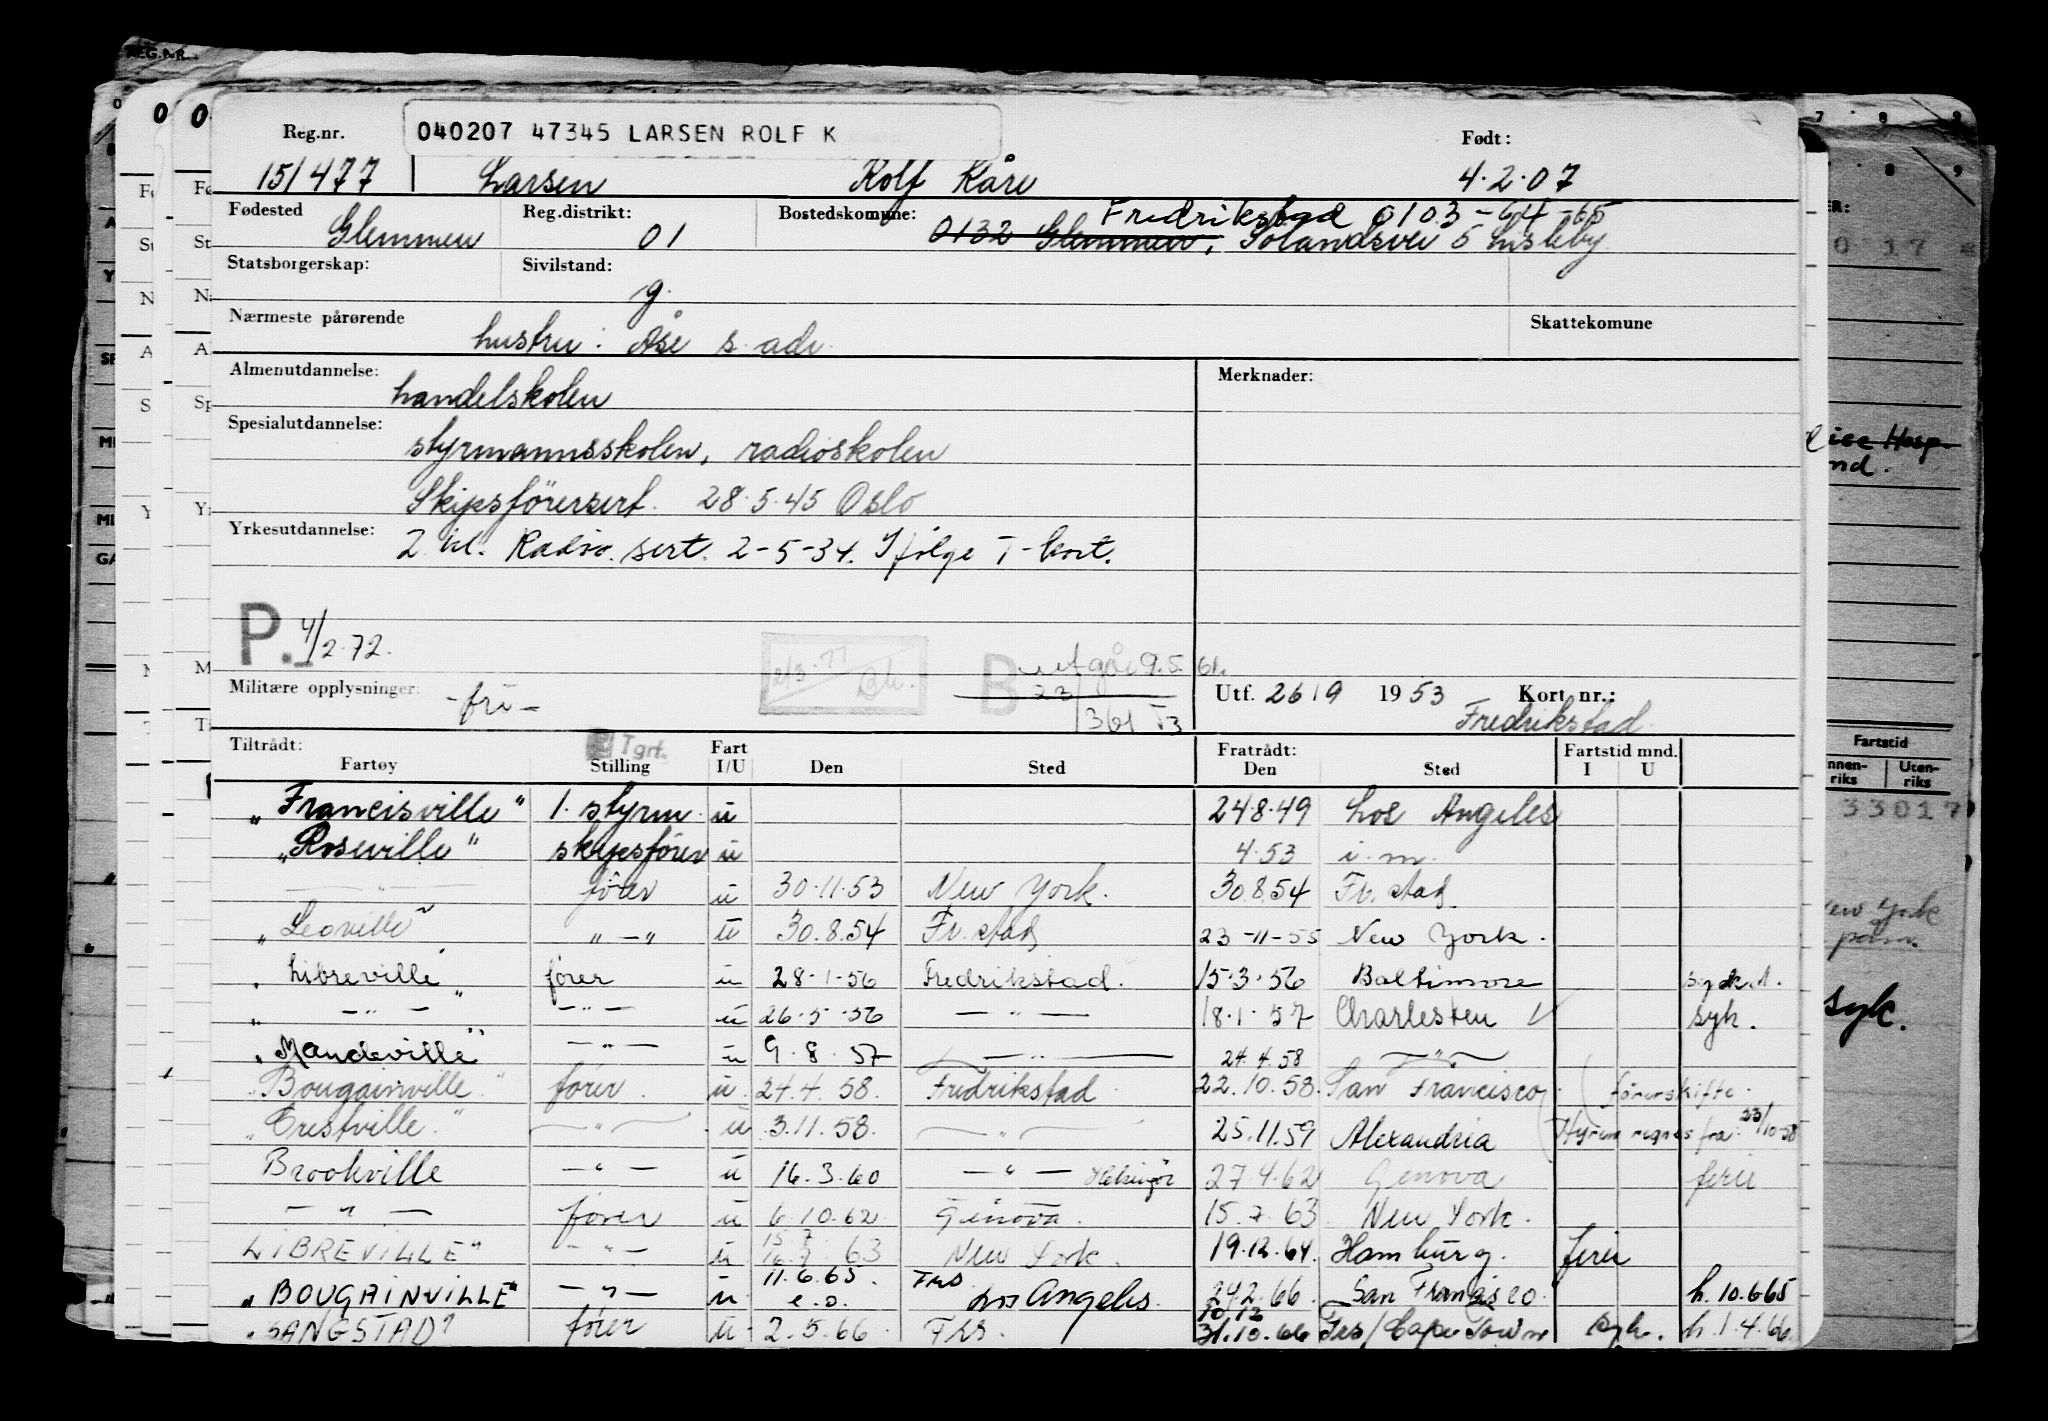 REG.NR.
040207 47345 LARSEN ROLF K
Reg.nr. Født:
15/477 Larsen Rolf Kåre 4.2.07
Fødested Reg.distrikt: Bostedskomune: Fredrikstad 0103-64-65
Glemmen 01 0132 Glemmen, Solandsvei 5 Lisleby
Statsborgerskap: Sivilstand:
g.
Nærmeste pårørende Skattekomune
hustru: Åse s. adr.
Almenutdannelse: Merknader:
handelskolen
Spesialutdannelse:
styrmannsskolen, radioskolen
Skipsförersert. 28.5.45 Oslo
Yrkesutdannelse:
2. kl. Radio. sert. 2-5-34. Ifølge T-kort.
P. 4/2-72.
B utgår 9.5.61.
Militære opplysninger: -fri- Utf. 26/9 1953 Kort nr.:
Fredrikstad
Tiltrådt: Tgrf. Fart Fratrådt: Fartstid mnd.
Fartøy Stilling I/U Den Sted Den Sted I U
"Francisville" 1. styrm. u 24.8.49 Los Angeles
"Roseville" skipsfören u 4.53 i.m.
— " — förer u 30.11.53 New York. 30.8.54 Fr.stad.
"Leoville" " — " u 30.8.54 Fr.stad 23-11-55 New York.
"Libreville" förer u 28-1-56 Fredrikstad. 15.3.56 Baltimore
" — " — — " — u 26-5-56 — " — 18.1-57 Charlesten syk.
"Mandeville" — " — u 9.8.57 — " — 24.4.58 — " —
"Bougainville" fører. u 24.4.58. Fredrikstad. 22.10.58. San Francisco förerskifte
"Crestville." — " — u 3.11.58. — " — 25.11.59 Alexandria Hyren regnes fra: 23/10-58
Brookville — " — u 16.3.60 — " — Helsingör 27.4.62 Genova ferie
— " — fører u 6.10.62. Genova. 15.7.63. New York.
LIBREVILLE" — " — u 15.7.63 New York. 19.12.64. Hamburg. ferie
"BOUGAINVILLE" — " — u 11.6.65. e.o. Frs Los Angeles. 24.2.66. San Francisco. h. 10.6.65
"SANGSTAD" fører u 2.5.66. Frs. 10.12 31.10.66 Frs/Cape Town syk. h. 1.4.66.
Hosp.
nd.
syk.
Fartstid
Innen-riks Uten-riks
33017
New York